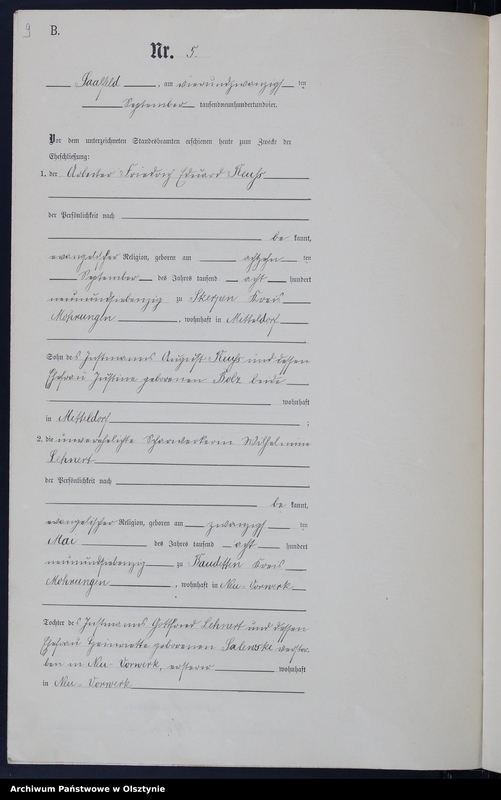 9
B.
Nr. 5.
Saalfeld, am vierundzwanzigsten
September tausendneunhundertundvier.
Vor dem unterzeichneten Standesbeamten erschienen heute zum Zwecke der
Eheschließung:
1. der Arbeiter Friedrich Eduard
der Persönlichkeit nach
be kannt,
evangelischer Religion, geboren am achtzehn ten
September des Jahres tausend acht hundert
neunundsiebenzig zu Skerpen Kreis
Mohrungen, wohnhaft in Mitteldorf
Sohn des Instmanns August und dessen
Ehefrau Justine geborenen Kolz beide
wohnhaft
in Mitteldorf;
2. die unverehelichte Scharwerkerin Wilhelmine
Lehnert
der Persönlichkeit nach
be kannt,
evangelischer Religion, geboren am zwanzigsten
Mai des Jahres tausend acht hundert
neunundsiebenzig zu Kreis
Mohrungen, wohnhaft in Neu-Vorwerk
Tochter des Instmanns Gottfried Lehnert und dessen
Ehefrau Henriette geborenen Salewski verstor-
ben in Neu-Vorwerk, ersterer wohnhaft
in Neu-Vorwerk
Archiwum Państwowe w Olsztynie